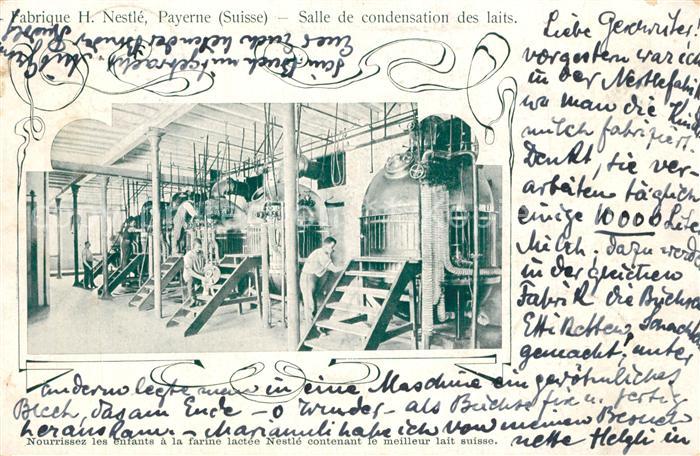 Fabrique H. Nestlé, Payerne (Suisse) – Salle de condensation des laits.
Liebe Geschwister!
vorgestern war ich
in der Nestlefabrik
wo man die Kinder
milch fabriziert.
Denkt, sie ver-
arbeiten täglich
einige 10000 Liter
Milch; dazu werden
in der gleichen
Fabrik die Büchsen
Etiketten, Schachteln
gemacht; unter
anderm legte man in eine Maschine ein gewöhnliches
Blech, das am Ende – o Wunder – als Büchse fix u. fertig
herauskam. – Mariannli habe ich von meinem Besuch
nette Helgli in
Nourrissez les enfants à la farine lactée Nestlé contenant le meilleur lait suisse.
Euer Euch liebender Bruder